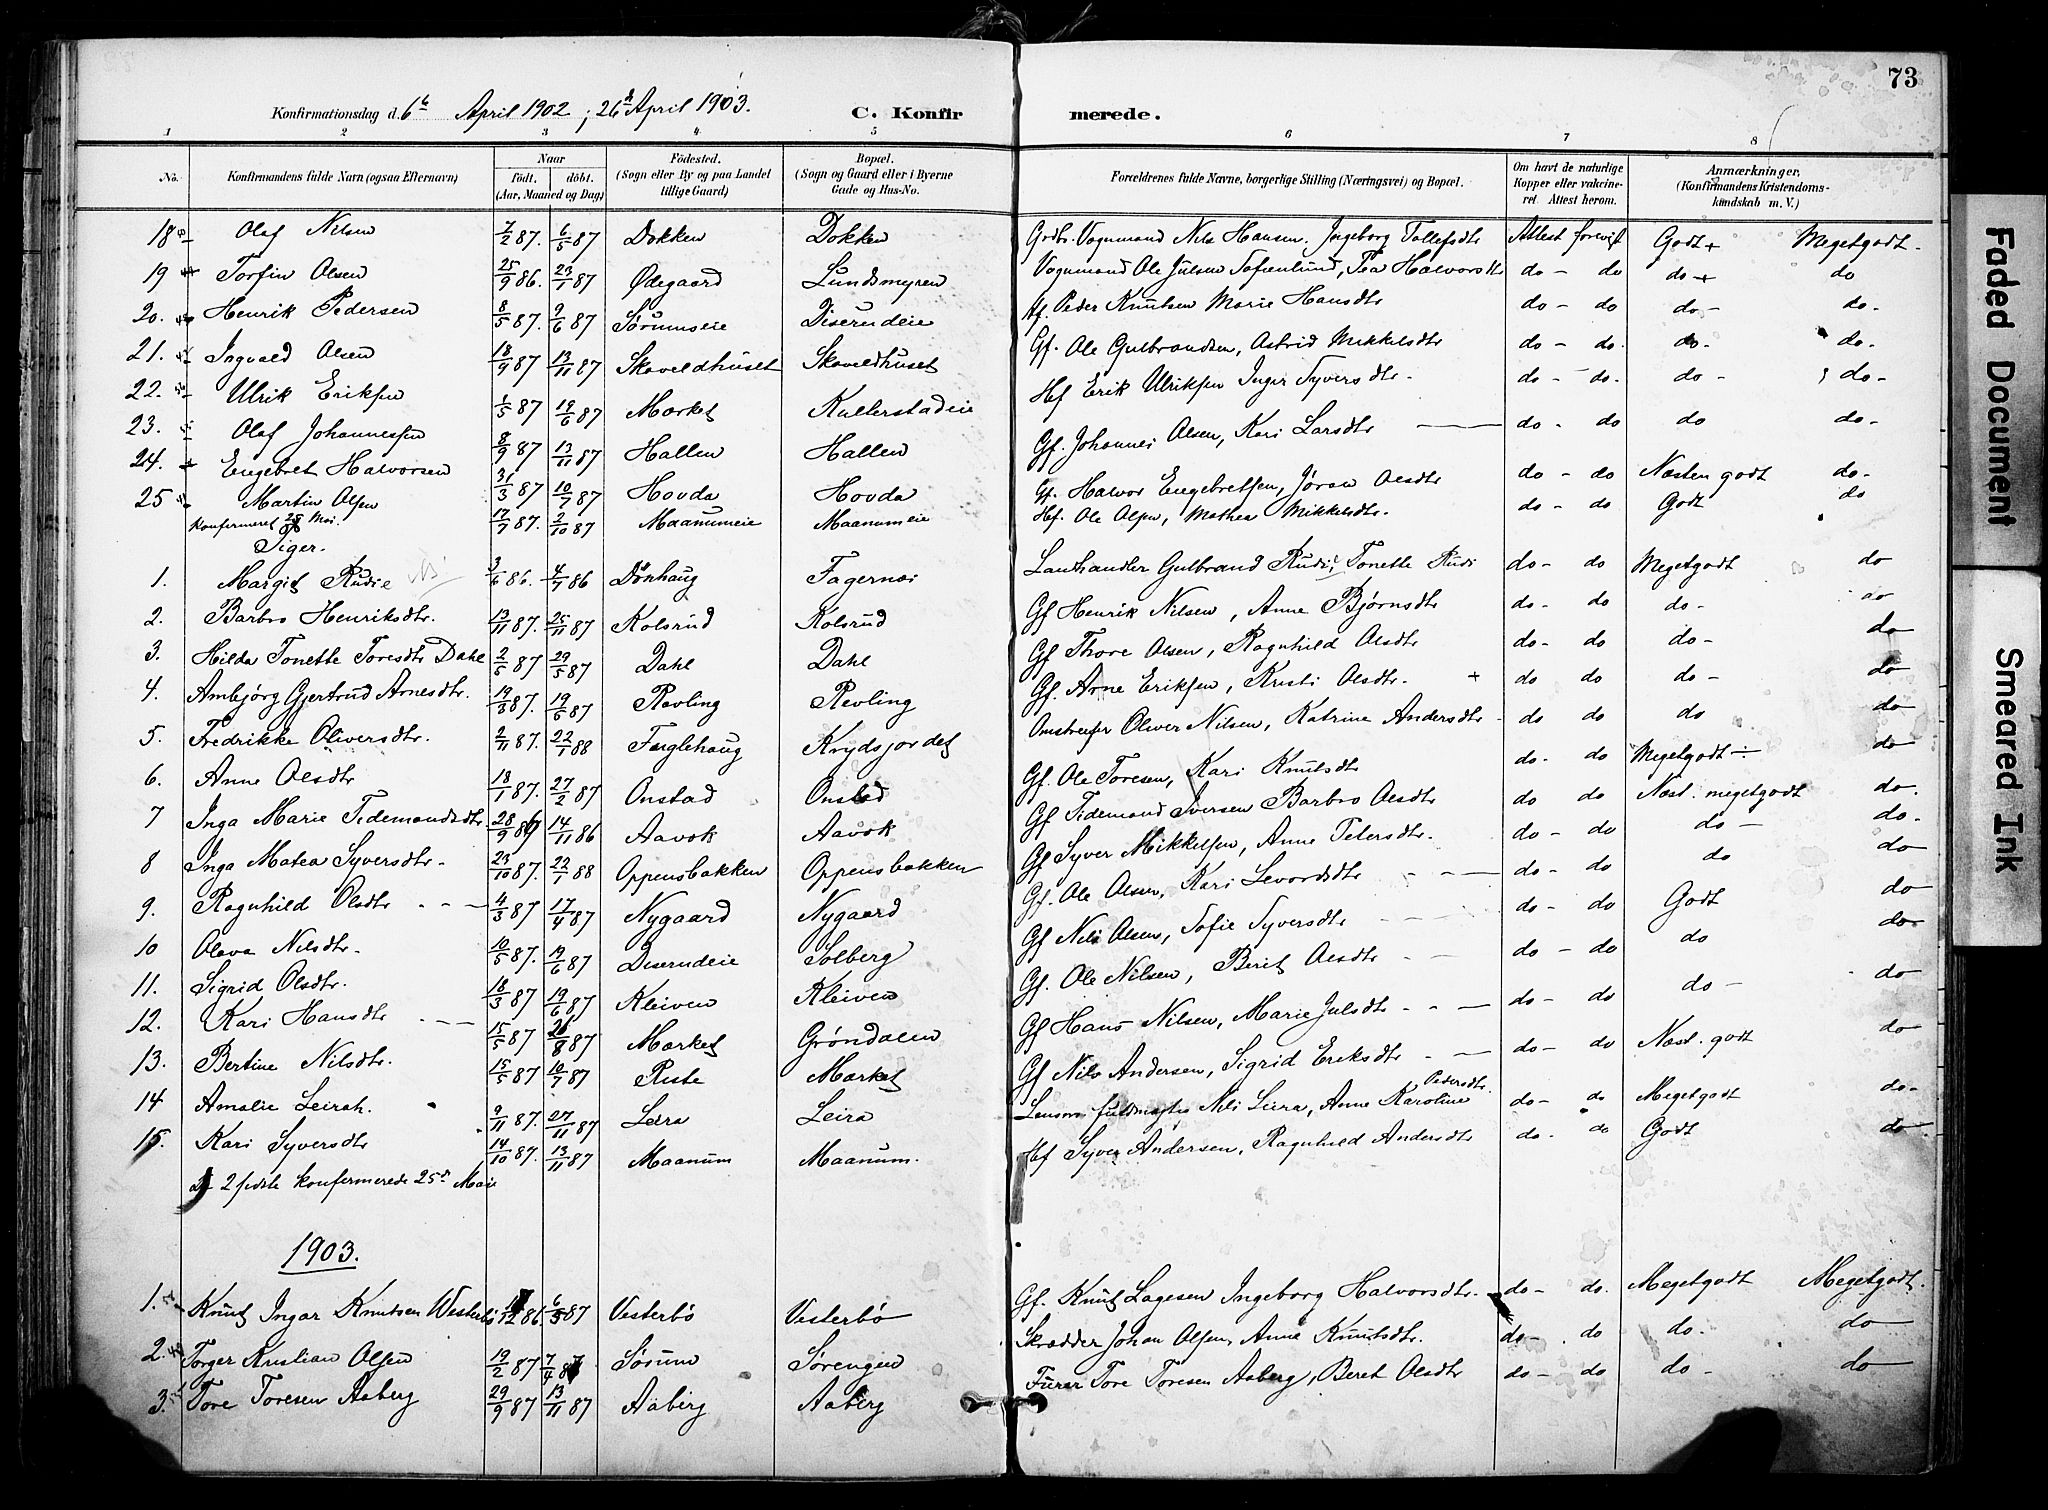 73
Konfirmationsdag d. 6te April 1902; 26de April 1903. C. Konfirmerede.
1 2 3 4 5 6 7 8
No. Konfirmandens fulde Navn (ogsaa Efternavn) Naar født. døbt. (Aar, Maaned og Dag) Fødested. (Sogn eller By og paa Landet tillige Gaard) Bopæl. (Sogn og Gaard eller i Byerne Gade og Hus-No. Forældrenes fulde Navne, borgerlige Stilling (Næringsvei) og Bopæl. Om havt de naturlige Kopper eller vakcineret. Attest herom. Anmærkninger, (Konfirmandens Kristendomskundskab m. V.)
18 Olaf Nilsen 7/2 87. 6/5 87 Dokken Dokken Grdbr. Vognmand Nils Hansen, Ingeborg Tollefsdtr Attest forevist Godt + Megetgodt.
19 Torfin Olsen 25/9 86. 23/1 87 Ødegaard Lundsmyren Vognmand Ole Julsen Tofienlund, Tea Halvorsdtr do - do do + do
20. Henrik Pedersen 8/5 87. 9/6 87 Sørumseie Diserudeie Hf. Peder Knutsen Marie Hansdtr do - do do - do.
21. Ingvald Olsen 18/9 87 13/11 87 Skaveldhuset Skoveldhuset Gf. Ole Gulbrandsen, Astrid Mikkelsdtr do - do. do. do.
22. Ulrik Eriksen 1/5 87 19/6 87 Mørket Kallerstadeie Hf Erik Ulriksen Inger Syversdtr. do - do. do - do -
23. Olaf Johannessen 8/9 87 13/11 87 Hallen Hallen Gf. Johannes Olsen, Kari Larsdtr do - do do do -
24. Engebret Halvorsen 31/3 87 10/7 87 Hovda Hovda Gf. Halvor Engebretsen, Jøran Olesdtr do - do Næsten godt do -
25 Martin Olsen 17/9 87. 2/10 87 Maanumeie Maanumeie Hf. Ole Olsen, Mathea Mikkelsdtr. do - do Godt do
Konfirmeret 25 Mai.
Piger.
1. Margit Rudie 3/6 86. 4/7 86 Dønhaug Fagernæs Landhandler Gulbrand Rudi, Tonette Rudi do - do Megetgodt do
2. Barbro Henriksdtr. 13/11 87. 25/11 87 Kolsrud Kolsrud Gf Henrik Nilsen, Anne Bjørnsdtr do - do do - do
3. Hilda Tonette Toresdtr Dahl 2/5 87 29/5 87 Dahl Dahl Gf Thore Olsen, Ragnhild Olsdtr do - do do - do
4. Ambjørg Gjertrud Arnesdtr. 19/3 87. 19/6 87 Røvling Revling Gf. Arne Eriksen, Kristi Olsdtr. + do do do - do
5. Fredrikke Oliversdtr. 2/11 87. 22/1 88 Fuglehaug Krydsjordet Omstreifer Oliver Nilsen, Katrine Andersdtr - do do do do
6. Anne Olesdtr 18/1 87. 27/2 87 Onstad Onstad Gf. Ole Toresen, Kari Knutsdtr do - do Megetgodt ÷ do
7 Inga Marie Tidemandsdtr 28/9 86 14/11 86 Aavok Aavok Gf Tidemand Iversen Barbro Olesdtr do do Næst. megetgodt do.
8 Inga Matea Syversdtr. 23/10 87. 22/1 88 Oppensbakken Oppensbakken Gf Syver Mikkelsen, Anne Petersdtr. do - do do - do.
9. Ragnhild Olsdtr 4/3 87 17/4 87 Nygaard Nygaard Gf. Ole Olsen, Kari Levordsdtr do - do do do
10 Olava Nilsdtr. 10/5 87. 19/6 87 Diserudeie Solberg Gf Nils Olsen, Sofie Syversdtr do - do Godt do
11. Sigrid Olsdtr. 18/3 87 19/6 87 Kleiven Kleiven Gf. Ole Nilsen, Berit Olesdtr do - do do do.
12. Kari Hansdtr 15/5 87 21/8 87 Mørket Grøndalen Gf Hans Nilsen, Marie Julsdtr do - do do - do
13. Bertine Nilsdtr. 15/5 87 10/7 87 Riste Mørket Gf Nils Andersen, Sigrid Eriksdtr do - do Næst. godt do
14 Amalie Leirah. 9/11 87. 27/11 87 Leira Leira Lensm. fuldmægtig Nils Leira, Anne Karoline Pedersdtr. do - do Megetgodt do.
15. Kari Syversdtr 14/10 87. 13/11 87 Maanum Maanum. Hf Syver Andersen, Ragnhild Andersdtr do - do Godt do.
De 2 sidste konfermerede 25de Maie
1903.
1. Knut Ingar Knutsen Westerbø 17/12 86. 6/3 87 Vesterbø Vesterbø Gf. Knut Lagesen Ingeborg Halvorsdtr. do - do. Megetgodt Megetgodt.
2. Torger Kristian Olsen 19/2 87 7/4 87 Sørum Sørengen Skrædder Johan Olsen, Anne Knutsdtr. do - do do. do
3. Tore Toresen Aaberg 29/9 87 13/11 87 Aaberg Aaberg Furer Tore Toresen Aaberg, Beret Olsdtr do - do do - do
Faded Document
Smeared Ink